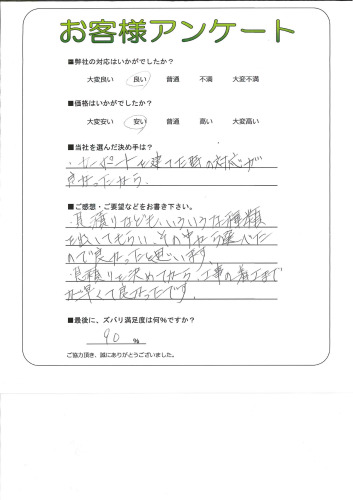 お客様アンケート
■弊社の対応はいかがでしたか？
大変良い 良い 普通 不満 大変不満
■価格はいかがでしたか？
大変安い 安い 普通 高い 大変高い
■当社を選んだ決め手は？
・カーポートを建てた時の対応が
良かったから。
■ご感想・ご要望などをお書き下さい。
・見積りなども、いろいろな種類
を出してもらい、その中から選べた
ので良かったと思います。
・見積りを決めてから、工事の着工まで
が早くて良かったです。
■最後に、ズバリ満足度は何%ですか？
90 %
ご協力頂き、誠にありがとうございました。